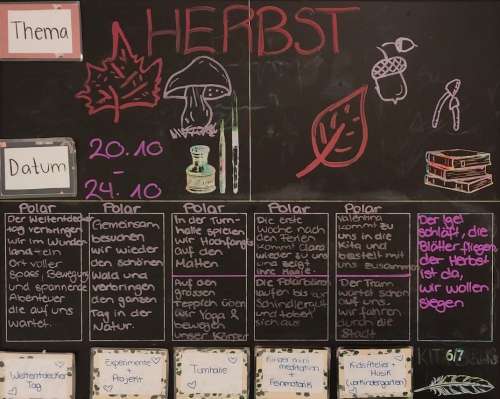 Thema
HERBST
Datum
20.10
-
24.10
Polar
Der Weltentdecker
tag verbringen
wir im Wunder
land - ein
Ort voller
Spass, Bewegung
und spannende
Abenteuer
die auf uns
wartet.
Polar
Gemeinsam
besuchen
wir wieder
den schönen
Wald und
verbringen
den ganzen
Tag in der
Natur.
Polar
In der Turn-
halle spielen
wir Hochfangis
auf den
Matten.
Auf den
grossen
Teppich üben
wir Yoga &
bewegen
unser Körper
Polar
Die erste
Woche nach
den Ferien
kommt Clara
wieder zu uns
und zeigt
ihre Magie.
Die Polarbären
laufen bis zur
und tobet
sich aus.
Polar
Valentina
kommt zu
uns in die
Kita und
bastelt mit
uns zusammen
Der Tram
wartet schon
auf uns,
wir fahren
durch die
Stadt
Der Igel
schläft, die
Blätter fliegen,
der Herbst
ist da,
wir wollen
siegen
Weltentdecker
Tag
Experimente
+
Projekt
Turnhalle
Kinder mini
meditation
+
Feinmotorik
Kidsatelier +
Musik
(Vorkindergarten)
KIT 6/7